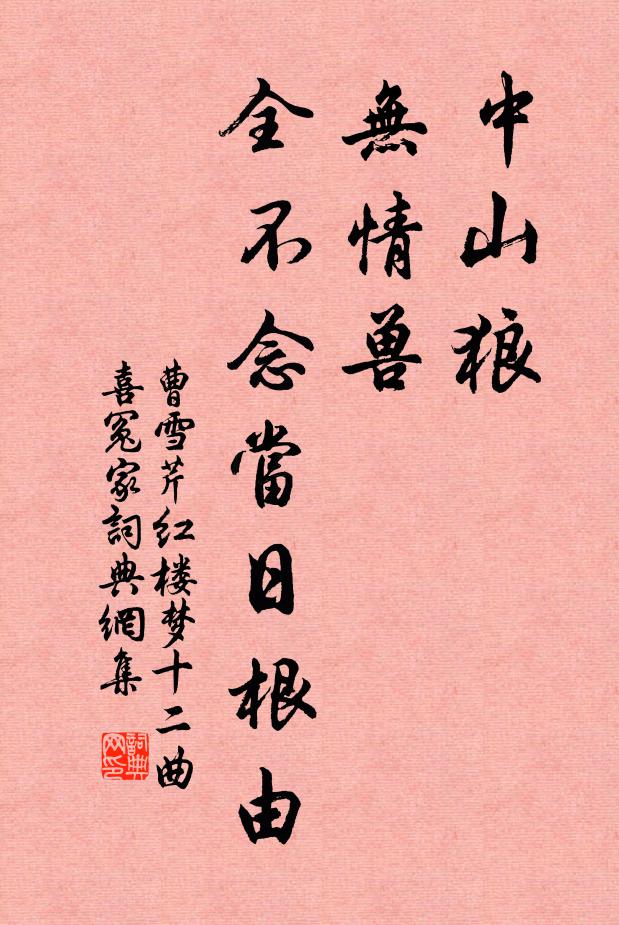 中山狼
無情兽
全不念當日根由
曹雪芹红楼梦十二曲
喜冤家詞典網集
詞典
网印